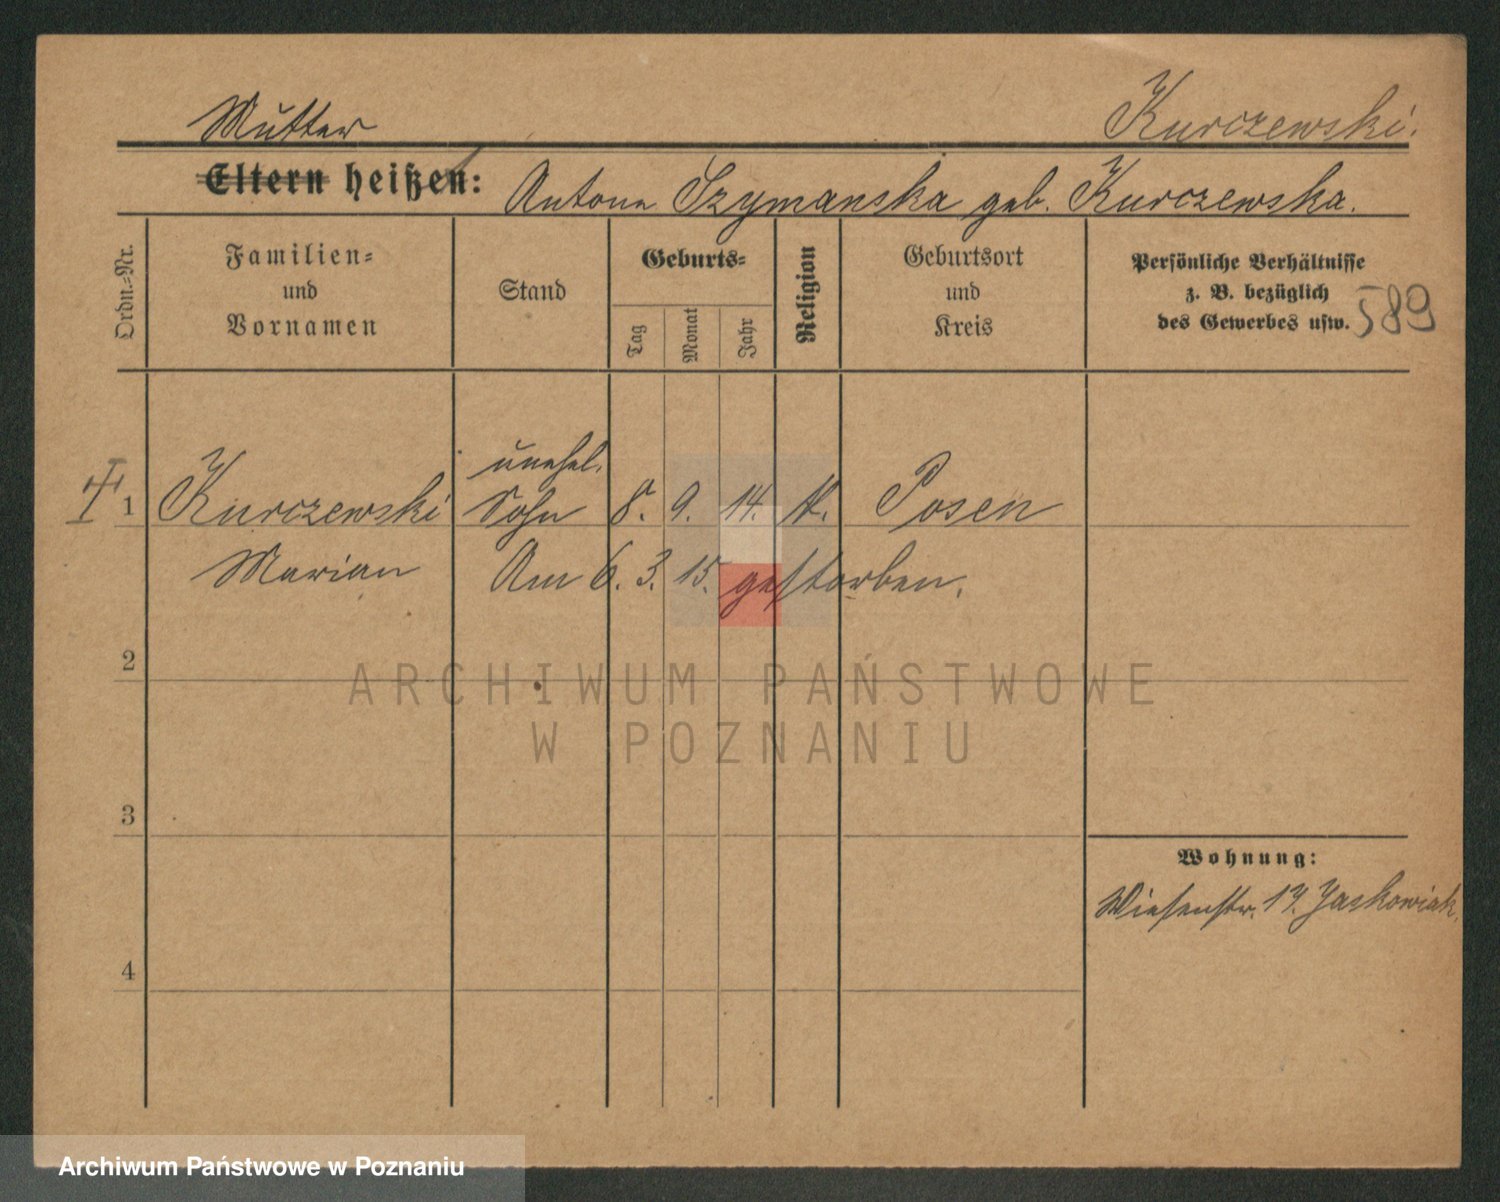 Mutter Kurczewski.
Eltern heißen: Antone Szymanska geb. Kurczewska.
Ordn.-Nr.
Familien-
und
Vornamen
Stand
Geburts-
Tag
Monat
Jahr
Religion
Geburtsort
und
Kreis
Persönliche Verhältnisse
z. B. bezüglich
des Gewerbes usw.
589
unehel.
1 Kurczewski Sohn 8. 9. 14. K. Posen
Marian Am 6. 3. 15. gestorben.
2
3
4
Wohnung:
Wiesenstr. 17. Jaskowiak.
ARCHIWUM PAŃSTWOWE
W POZNANIU
Archiwum Państwowe w Poznaniu